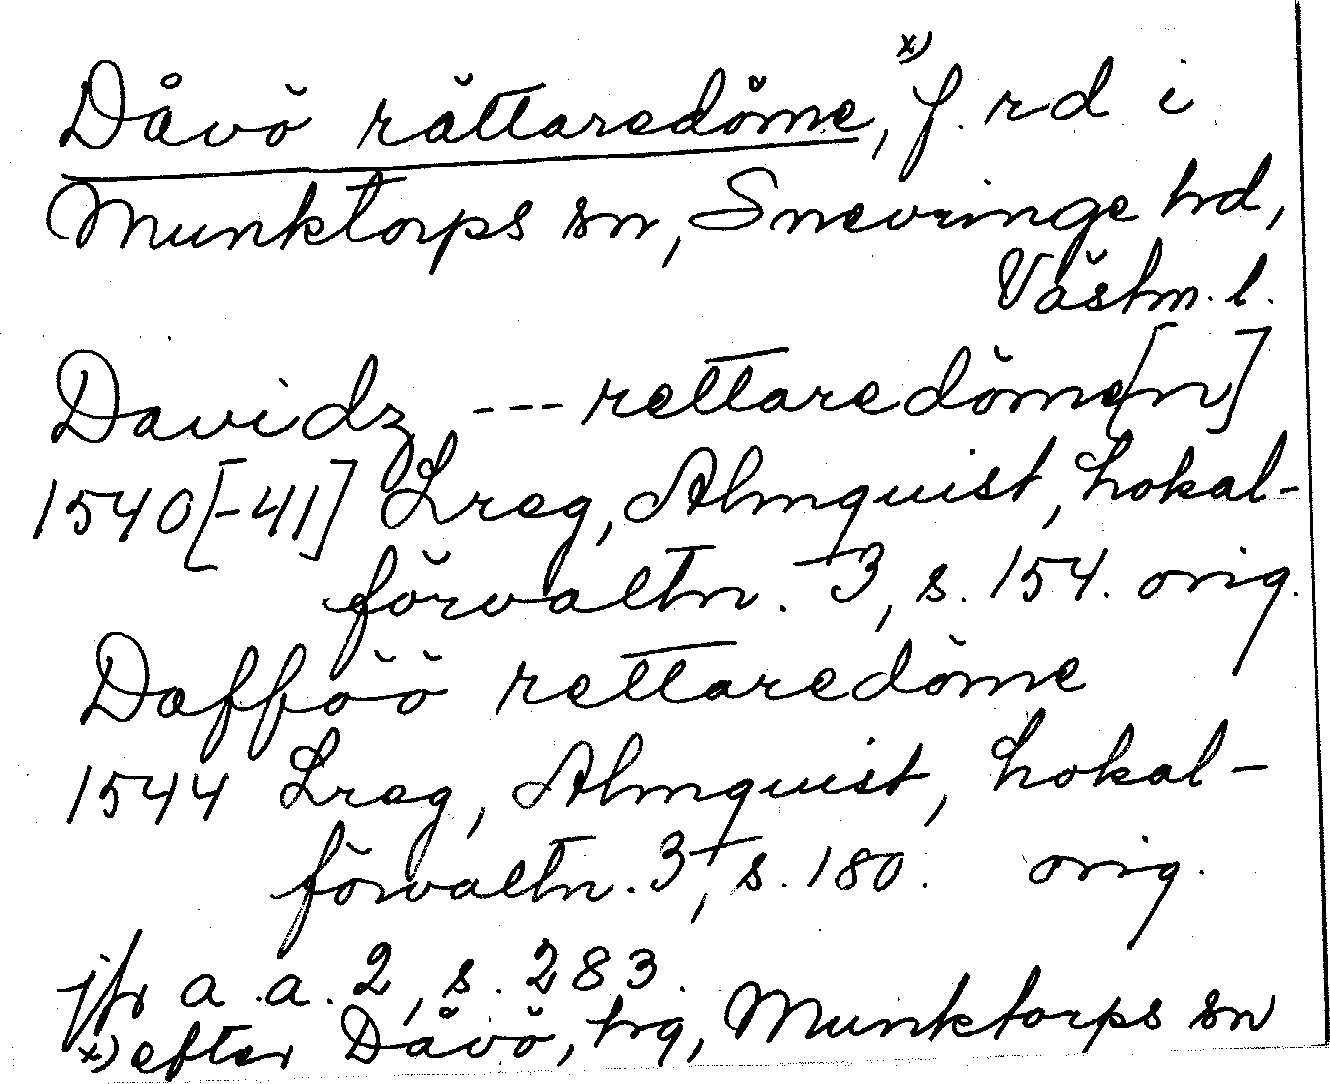 Dåvö rättaredöme, x) f. rd i
Munktorps sn, Snevringe hd,
Västm. l.
Davidz --- rettaredöme[n]
1540[-41] Lreg, Almquist, Lokal-
förvaltn. 3, s. 154. orig.
Dafföö rettaredöme
1544 Lreg, Almquist, Lokal-
förvaltn. 3, s. 180. orig.
jfr a. a. 2, s. 283.
x) efter Dåvö, hrg, Munktorps sn